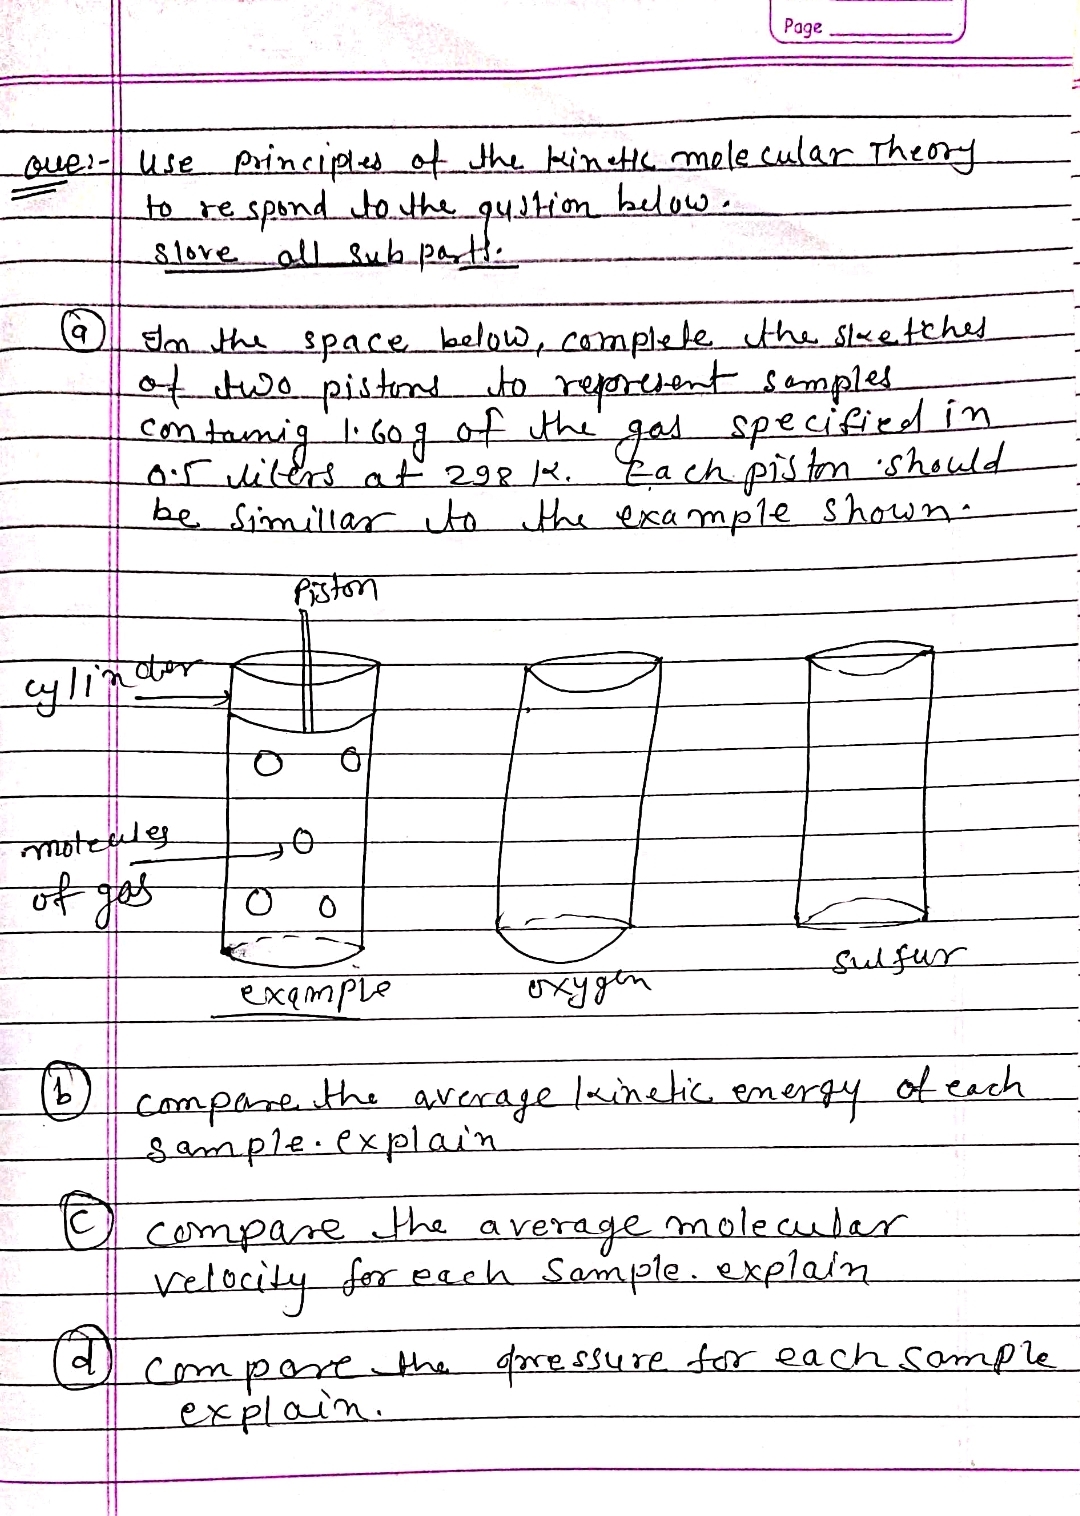 Page
Que:- Use principles of the kinetic molecular Theory
to respond to the qustion below.
Slove all sub parts.
(a) In the space below, complete the sketches
of two pistons to represent samples
containig 1.60 g of the gas specified in
0.5 liters at 298 K. Each piston should
be simillar to the example shown.
Piston
cylinder
molecules
of gas
example
oxygen
sulfur
(b) compare the average kinetic energy of each
sample. explain
(c) compare the average molecular
velocity for each sample. explain
(d) compare the pressure for each sample
explain.